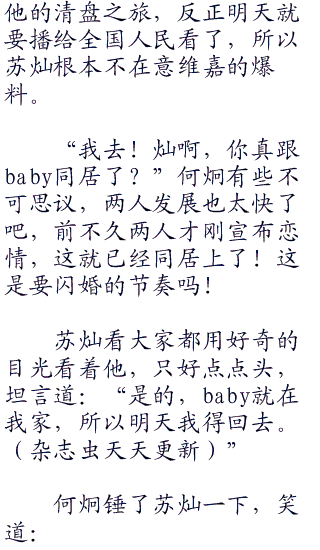 他的清盘之旅，反正明天就
要播给全国人民看了，所以
苏灿根本不在意维嘉的爆
料。
“我去！灿啊，你真跟
baby同居了？”何炯有些不
可思议，两人发展也太快了
吧，前不久两人才刚宣布恋
情，这就已经同居上了！这
是要闪婚的节奏吗！
苏灿看大家都用好奇的
目光看着他，只好点点头，
坦言道：“是的，baby就在
我家，所以明天我得回去。
（杂志虫天天更新）”
何炯锤了苏灿一下，笑
道：